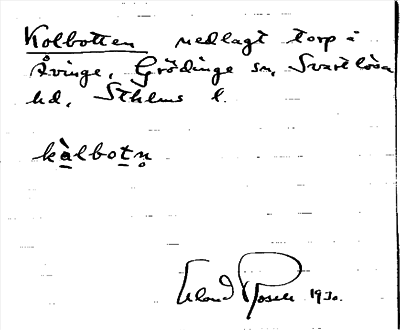 Kolbotten nedlagt torp i
Åvinge, Grödinge sn, Svartlösa
hd, Sthlms l.
kàlbotn̥
Erland Rosell 1930.